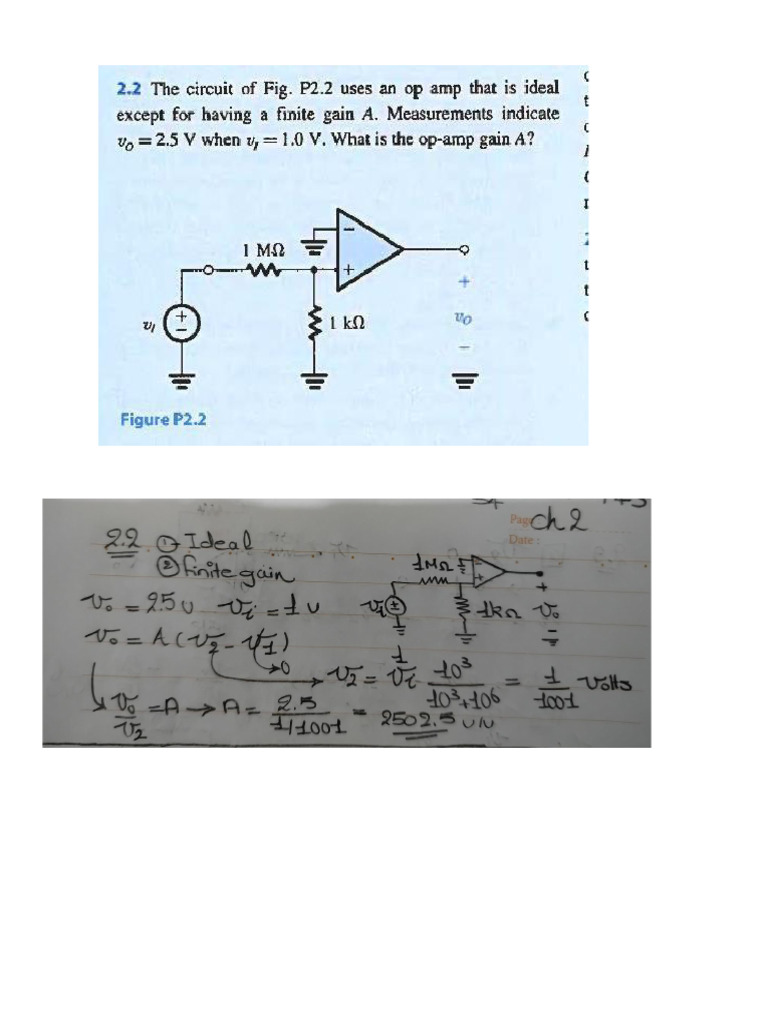 2.2 The circuit of Fig. P2.2 uses an op amp that is ideal
except for having a finite gain A. Measurements indicate
v_O = 2.5 V when v_I = 1.0 V. What is the op-amp gain A?
1 MΩ
−
+
+
−
v_I
1 kΩ
+
v_O
−
Figure P2.2
Page
ch 2
Date :
2.2 ① Ideal
② finite gain
1MΩ
v_o = 2.5 v v_i = 1 v
v_i
1kΩ
+
v_o
−
v_o = A (v_2 - v_1)
0
v_2 = v_i 10^3 / (10^3 + 10^6) = 1/1001 volts
1
v_o / v_2 = A → A = 2.5 / (1/1001) = 2502.5 v/v